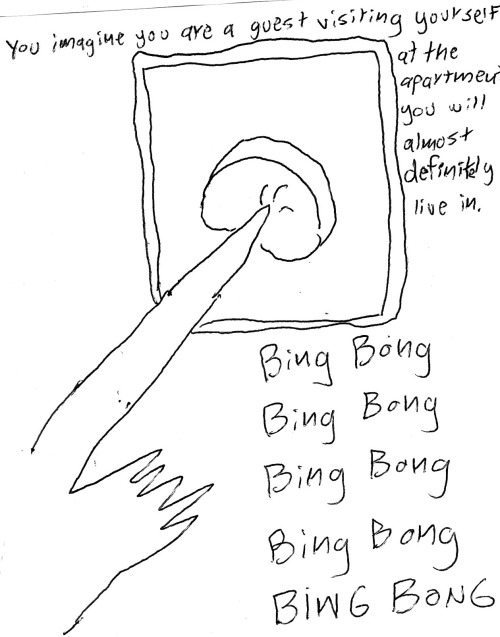 You imagine you are a guest visiting yourself
at the
apartment
you will
almost
definitely
live in.
Bing Bong
Bing Bong
Bing Bong
Bing Bong
BING BONG